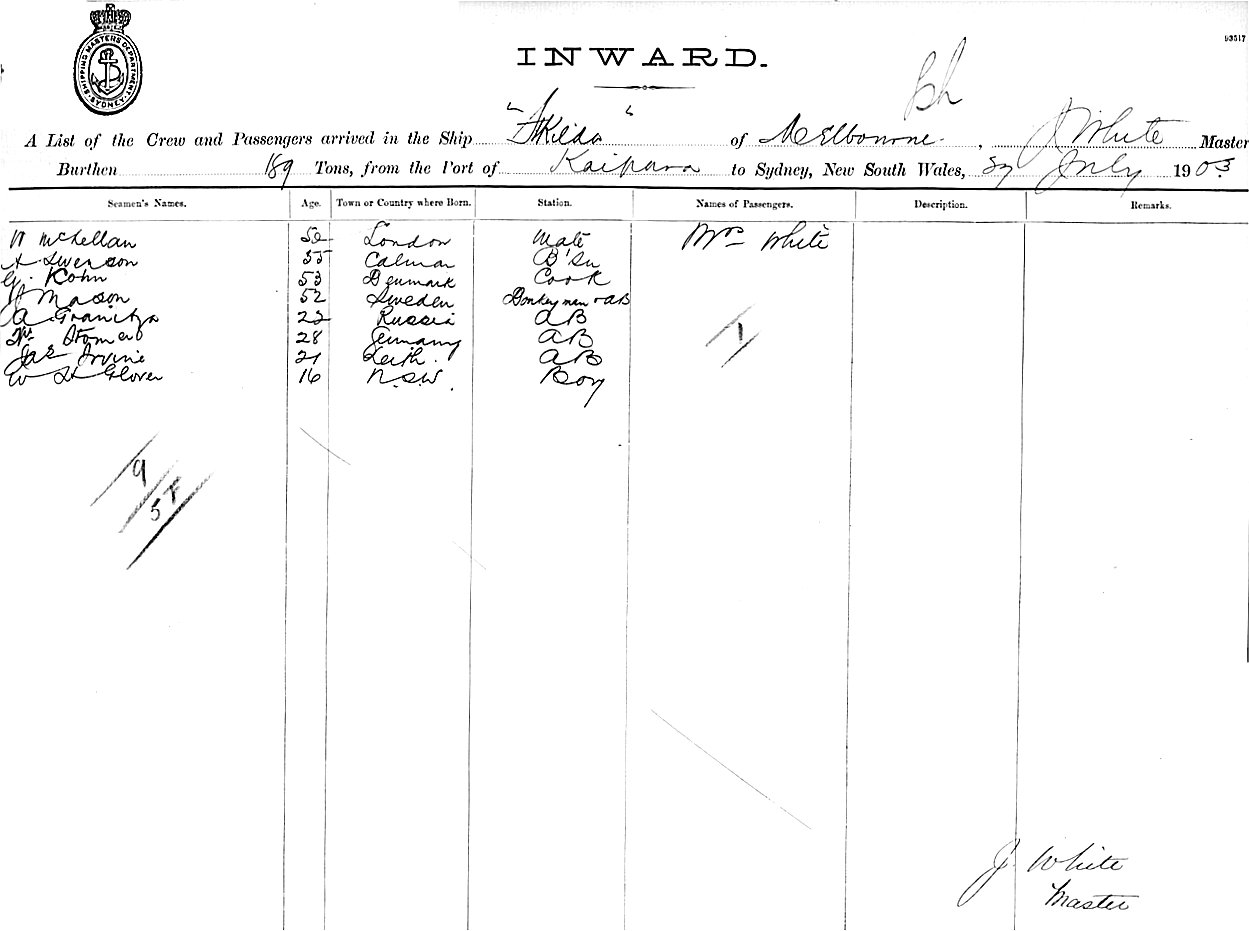 SHIPPING MASTERS DEPARTMENT SYDNEY
93517
INWARD.
A List of the Crew and Passengers arrived in the Ship "St Kilda" of Melbourne, J White Master
Burthen 189 Tons, from the Port of Kaipara to Sydney, New South Wales, July 1903
Seamen's Names. Age. Town or Country where Born. Station. Names of Passengers. Description. Remarks.
McLellan London Mate Mrs White
A Swenson Calmar B'Sn
G. Kohn 53 Denmark Cook
Mason 52 Sweden Donkeyman & AB
A Granitza 22 Russia AB
28 Germany AB
1
Jas Irvine 21 Leith. AB
W Glover 16 N.S.W. Boy
9
57
J White
Master